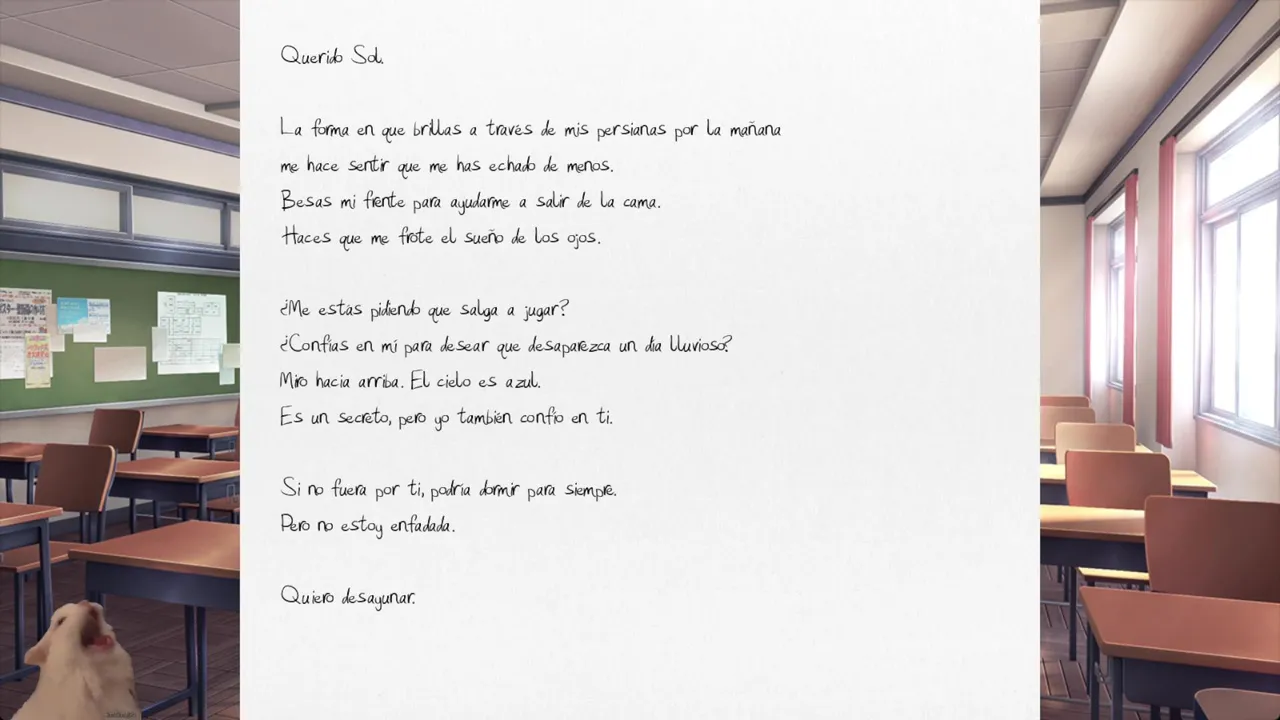 Querido Sol.
La forma en que brillas a través de mis persianas por la mañana
me hace sentir que me has echado de menos.
Besas mi frente para ayudarme a salir de la cama.
Haces que me frote el sueño de los ojos.
¿Me estás pidiendo que salga a jugar?
¿Confías en mí para desear que desaparezca un día lluvioso?
Miro hacia arriba. El cielo es azul.
Es un secreto, pero yo también confío en ti.
Si no fuera por ti, podría dormir para siempre.
Pero no estoy enfadada.
Quiero desayunar.